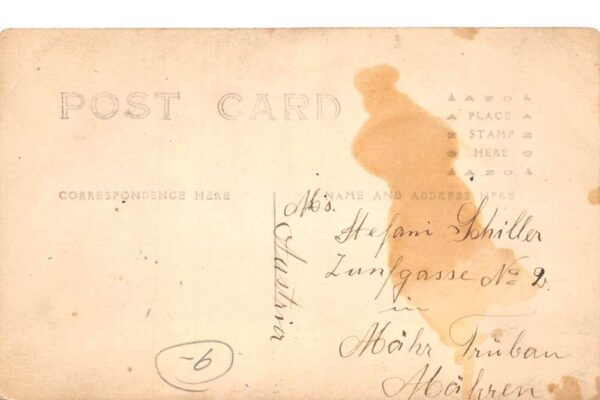 POST CARD
AZOA
PLACE
STAMP
HERE
AZOA
CORRESPONDENCE HERE
NAME AND ADDRESS HERE
Ms.
Stefani Schiller
Zunfgasse No 2.
in
Mähr Trüban
Mähren
Austria
6-